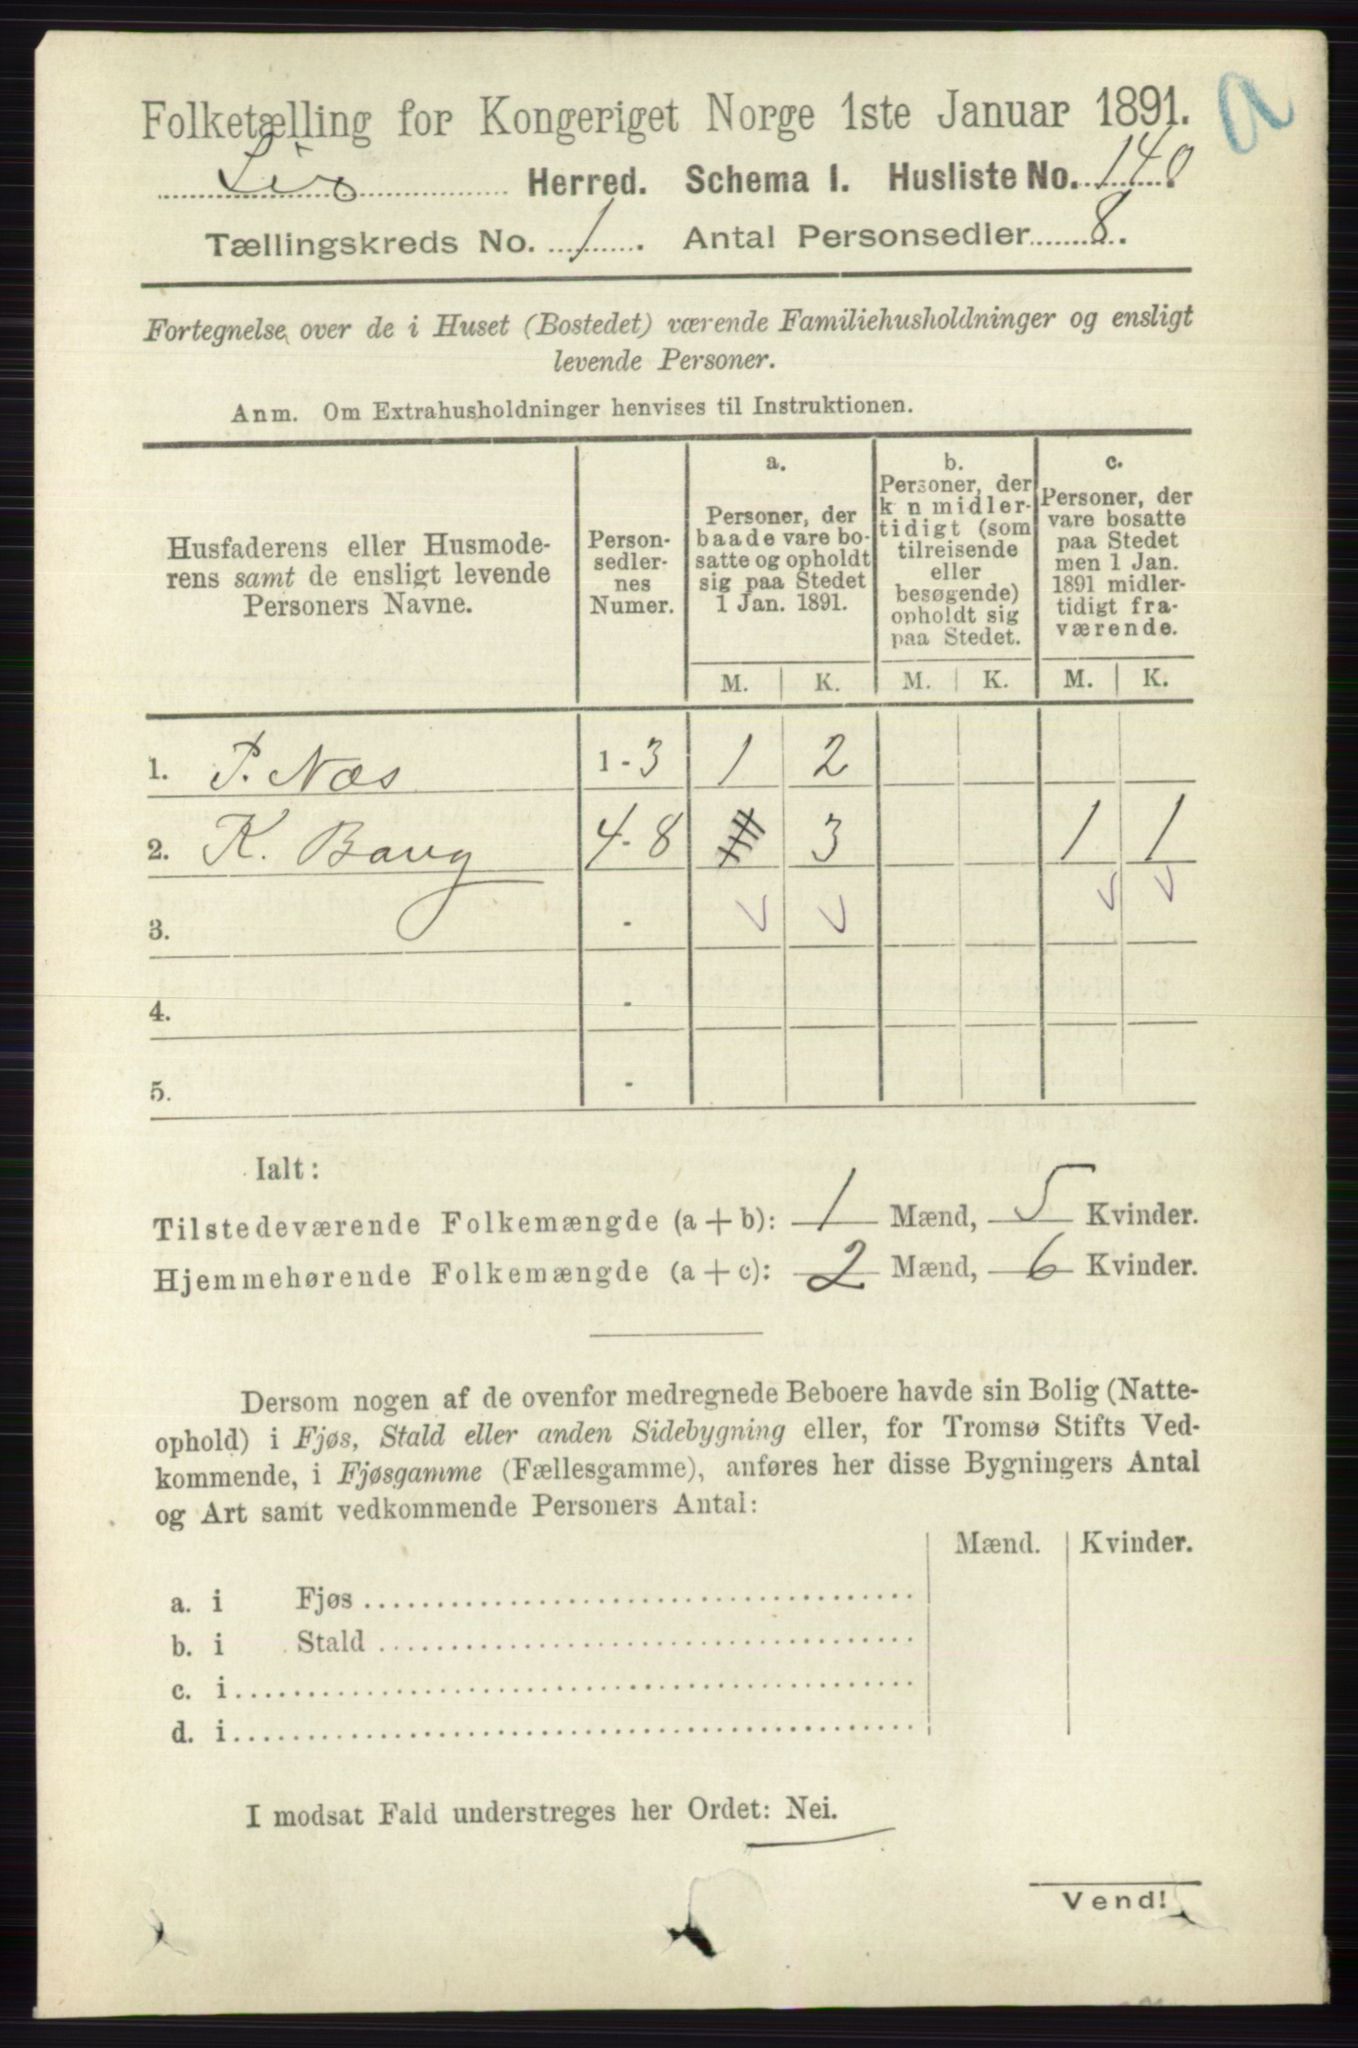 Folketælling for Kongeriget Norge 1ste Januar 1891.
a
Lier Herred. Schema I. Husliste No. 140
Tællingskreds No. 1. Antal Personsedler 8.
Fortegnelse over de i Huset (Bostedet) værende Familiehusholdninger og ensligt
levende Personer.
Anm. Om Extrahusholdninger henvises til Instruktionen.
Husfaderens eller Husmode-
rens samt de ensligt levende
Personers Navne.
Person-
sedler-
nes
Numer.
a.
Personer, der
baade vare bo-
satte og opholdt
sig paa Stedet
1 Jan. 1891.
b.
Personer, der
k n midler-
tidigt (som
tilreisende
eller
besøgende)
opholdt sig
paa Stedet.
c.
Personer, der
vare bosatte
paa Stedet
men 1 Jan.
1891 midler-
tidigt fra-
værende.
M. K. M. K. M. K.
1. P. Næs 1-3 1 2
2. K. Baug 4-8 3 1 1
3. -
4. -
5. -
Ialt:
Tilstedeværende Folkemængde (a + b): 1 Mænd, 5 Kvinder.
Hjemmehørende Folkemængde (a + c): 2 Mænd, 6 Kvinder.
Dersom nogen af de ovenfor medregnede Beboere havde sin Bolig (Natte-
ophold) i Fjøs, Stald eller anden Sidebygning eller, for Tromsø Stifts Ved-
kommende, i Fjøsgamme (Fællesgamme), anføres her disse Bygningers Antal
og Art samt vedkommende Personers Antal:
Mænd. Kvinder.
a. i Fjøs
b. i Stald
c. i
d. i
I modsat Fald understreges her Ordet: Nei.
Vend!